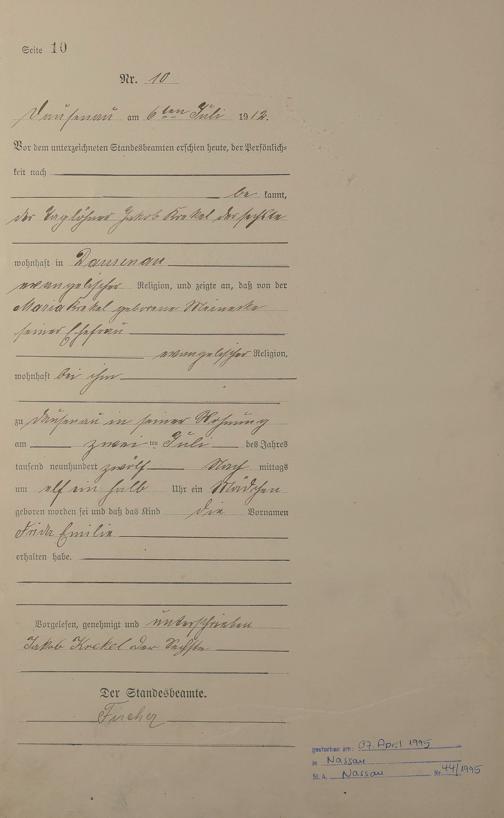 Seite 10
Nr. 10
Dausenau am 6ten Juli 1912.
Vor dem unterzeichneten Standesbeamten erschien heute, der Persönlich-
keit nach
be kannt,
der Taglöhner Jakob Krekel der sechste
wohnhaft in Dausenau
evangelischer Religion, und zeigte an, daß von der
Maria Krekel geborene Meinecke
seiner Ehefrau
evangelischer Religion,
wohnhaft bei ihm
zu Dausenau in seiner Wohnung
am zwei ten Juli des Jahres
tausend neunhundert zwölf Nach mittags
um elf ein halb Uhr ein Mädchen
geboren worden sei und daß das Kind die Vornamen
Frida Emilie
erhalten habe.
Vorgelesen, genehmigt und unterschrieben
Jakob Krekel der Sechste
Der Standesbeamte.
gestorben am: 07. April 1995
in Nassau
St.A. Nassau Nr. 44/1995